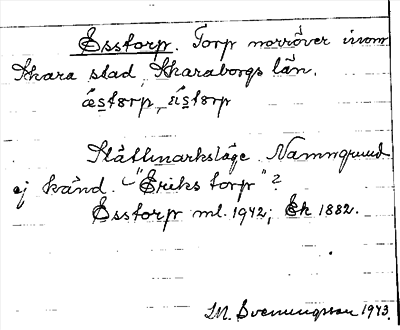 Esstorp. Torp norröver inom
Skara stad, Skaraborgs län.
ǽstɵrp, ǘstɵrp
Slättmarksläge. Namngrund
ej känd. "Eriks torp"?
Esstorp ml. 1942; Ek 1882.
M. Svenungsson 1943.